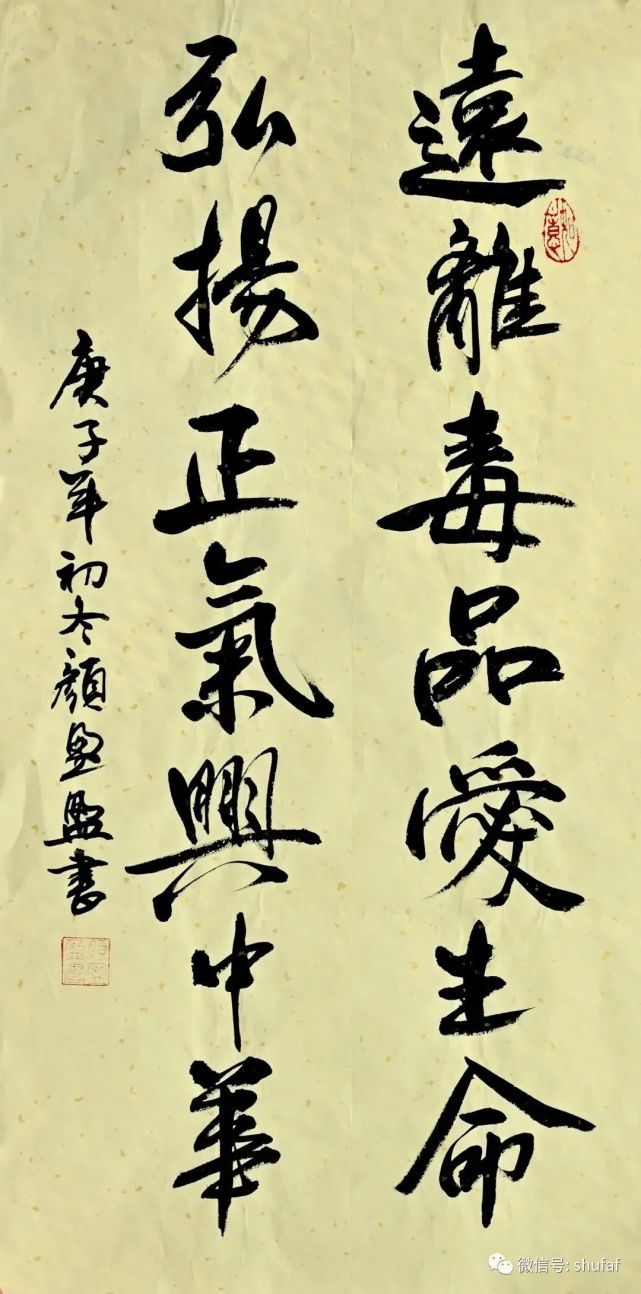 遠離毒品愛生命
弘揚正氣興中華
庚子年初冬顏盈盈書
微信号: shufaf